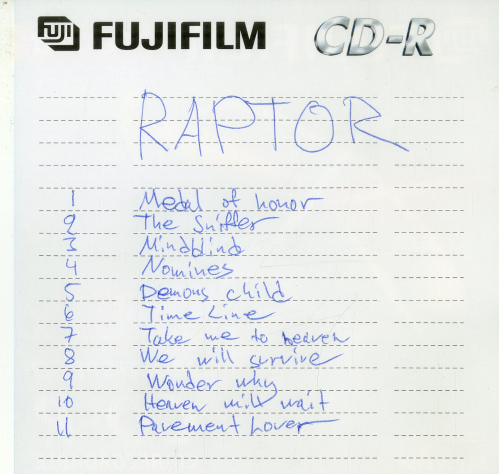 FUJI FUJIFILM CD-R
RAPTOR
1 Medal of honor
2 The Sniffer
3 Mindblind
4 Nomines
5 Demons child
6 Time Line
7 Take me to heaven
8 We will survive
9 Wonder why
10 Heaven will wait
11 Pavement Lover